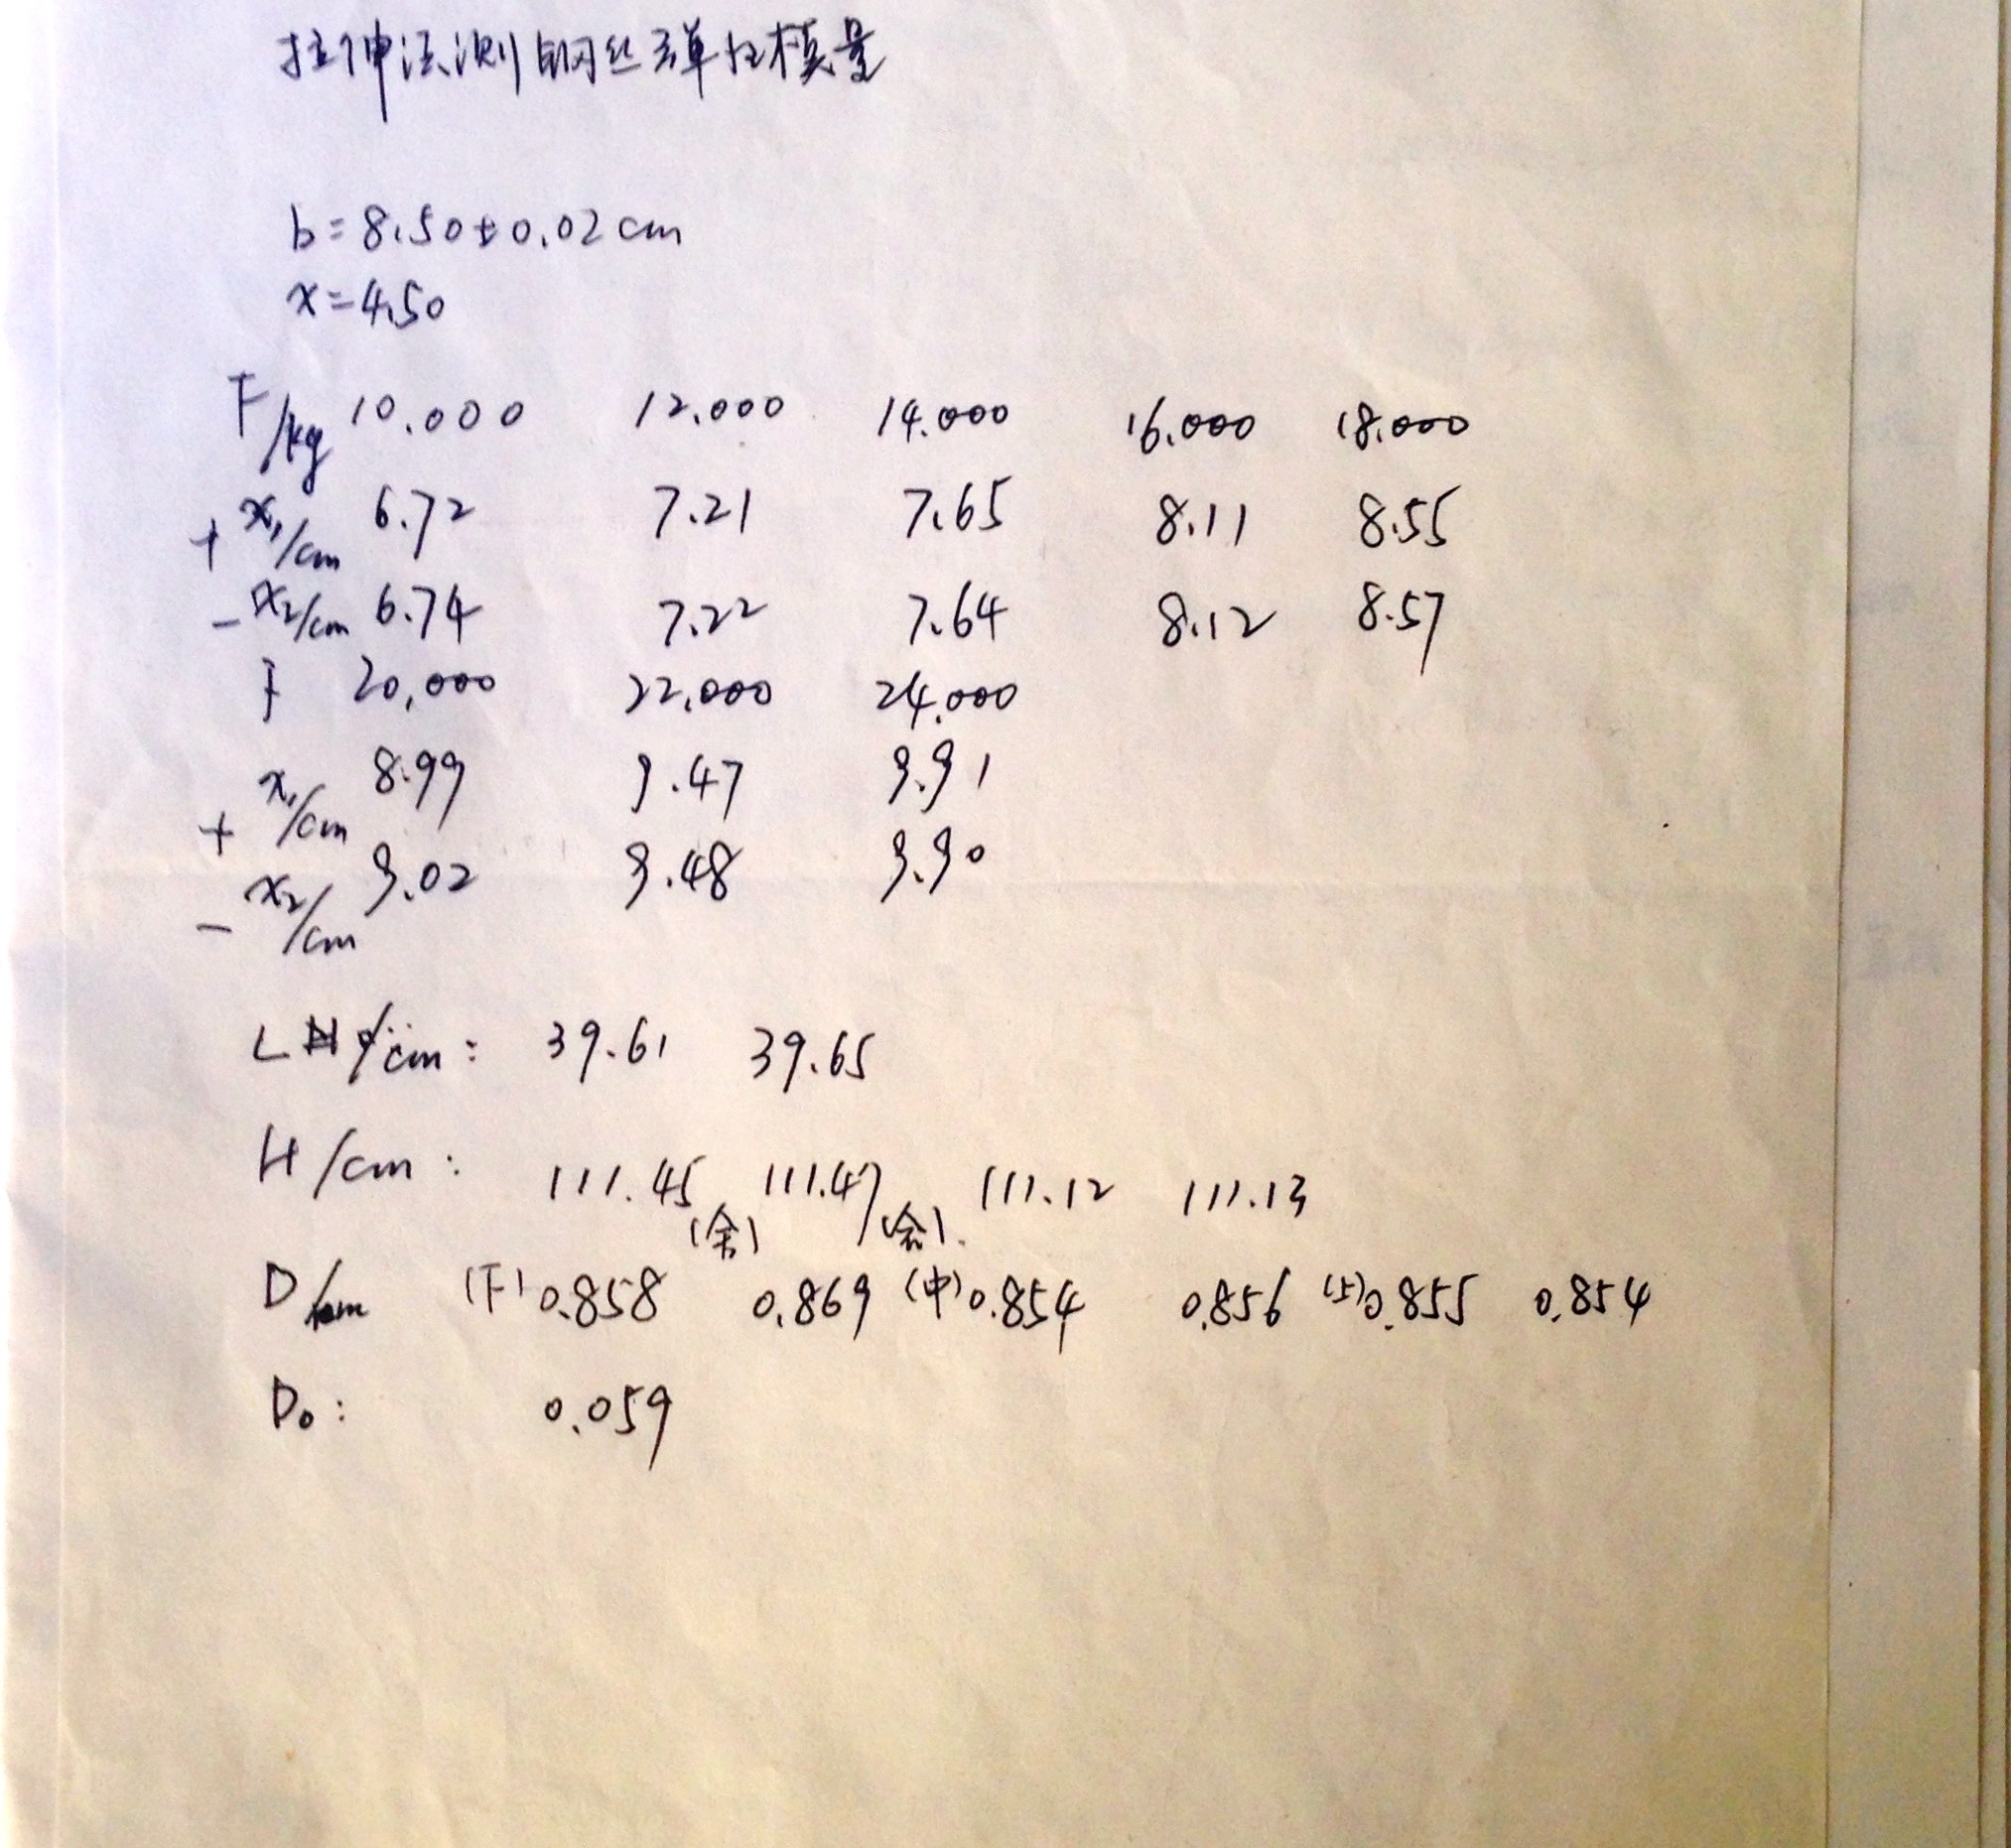 拉伸法测钢丝弹性模量
b=8.50±0.02cm
x=4.50
F/kg 10.000 12.000 14.000 16.000 18.000
+ x₁/cm 6.72 7.21 7.65 8.11 8.55
- x₂/cm 6.74 7.22 7.64 8.12 8.57
F 20,000 22.000 24.000
+ x₁/cm 8.99 9.47 9.91
- x₂/cm 9.02 9.48 9.90
L /cm: 39.61 39.65
H/cm: 111.45(舍) 111.47(舍). 111.12 111.13
D/mm (下)0.858 0.869 (中)0.854 0.856 (上)0.855 0.854
D₀: 0.059